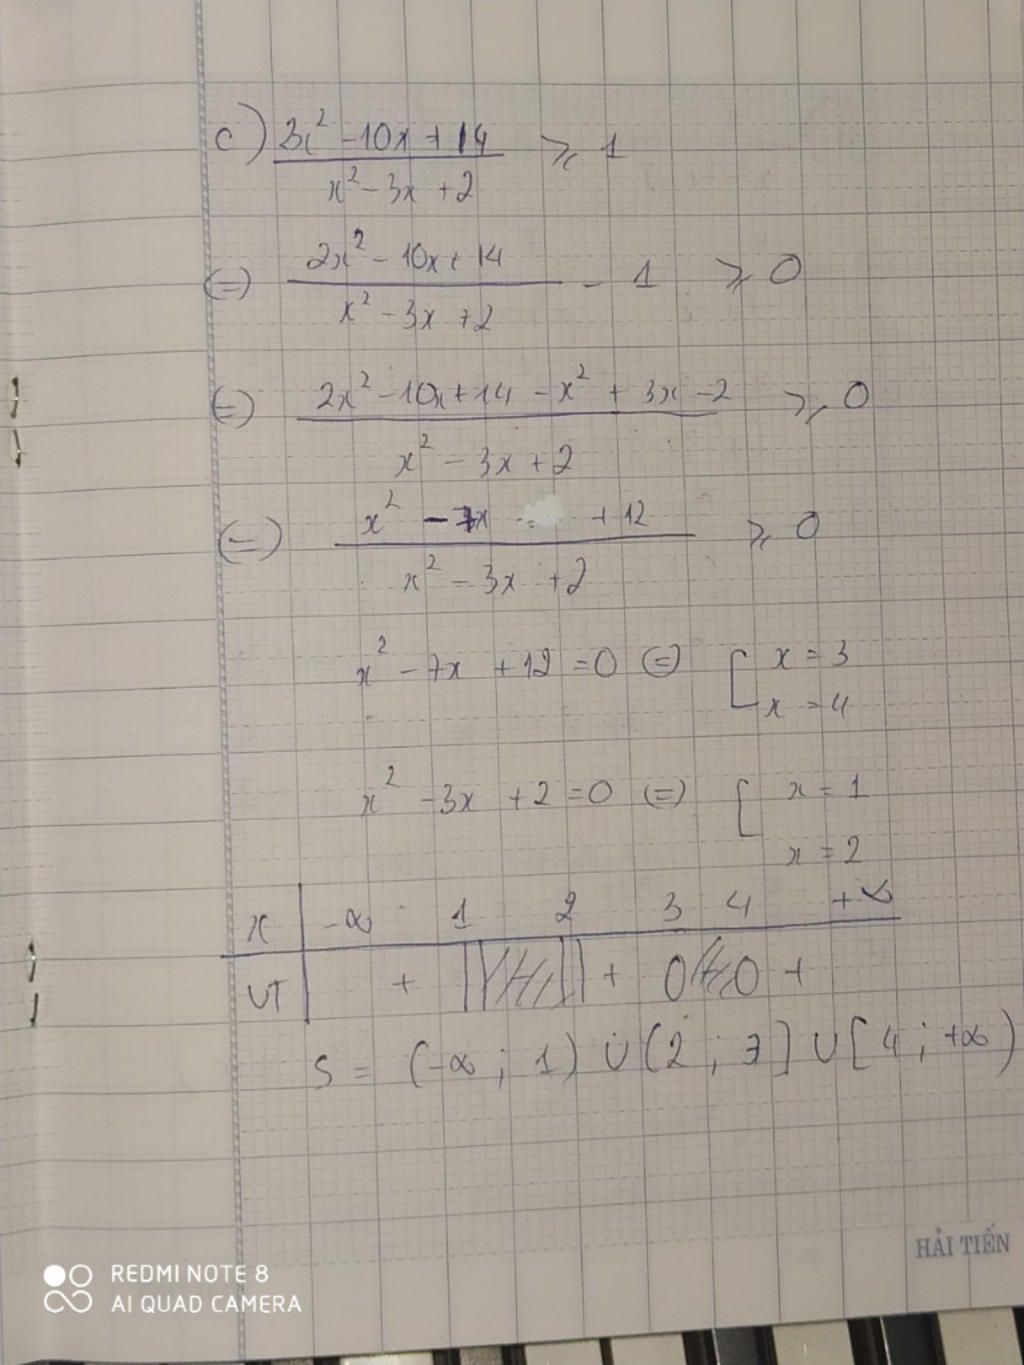 c) (3x² - 10x + 14)/(x² - 3x + 2) ⩾ 1
(=) (2x² - 10x + 14)/(x² - 3x + 2) - 1 ⩾ 0
(=) (2x² - 10x + 14 - x² + 3x - 2)/(x² - 3x + 2) ⩾ 0
(=) (x² - 7x + 12)/(x² - 3x + 2) ⩾ 0
x² - 7x + 12 = 0 (=) [ x = 3
x = 4
x² - 3x + 2 = 0 (=) [ x = 1
x = 2
x | -∞ 1 2 3 4 +∞
VT | + || //// || + 0 /// 0 +
S = (-∞ ; 1) ∪ (2 ; 3] ∪ [4 ; +∞)
HẢI TIẾN
REDMI NOTE 8
AI QUAD CAMERA